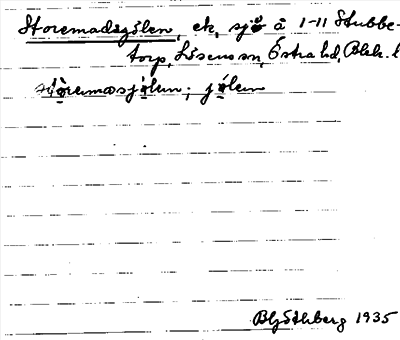 Storemadsgölen, ek, sjö å 1-11 Stubbe-
torp, Lösens sn, Östra hd, Blek. l
stòremasjölen; jölen
Blj Sthberg 1935